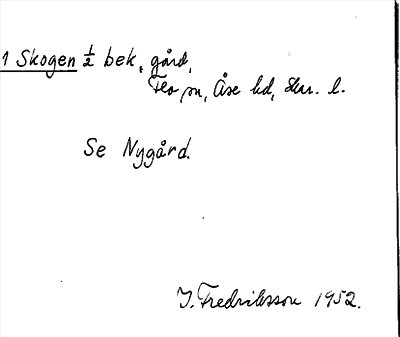 1 Skogen ½ bek, gård,
Flo sn, Åse hd, Skar. l.
Se Nygård.
I. Fredriksson 1952.